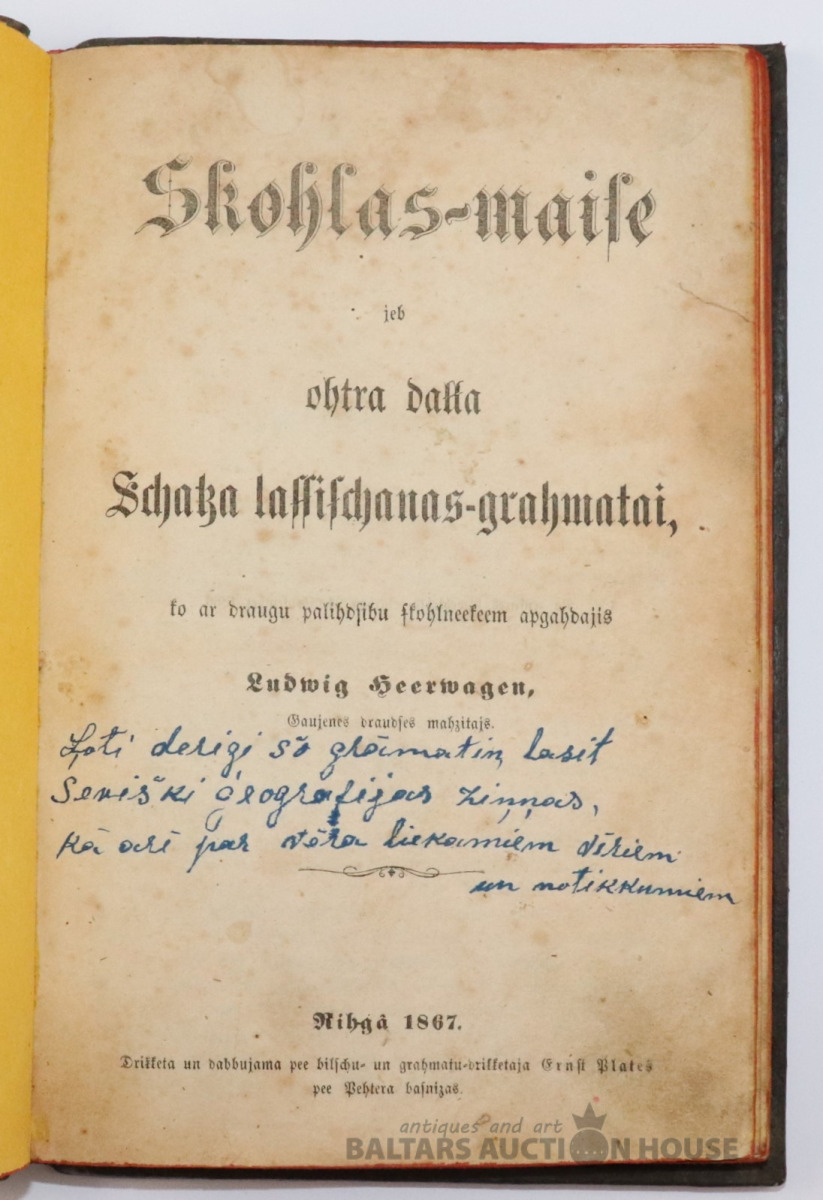 Skohlas-maiſe
jeb
ohtra daļļa
Schaķa laſſiſchanas-grahmatai,
ko ar draugu palihdſibu ſkohlneekeem apgahdajis
Ludwig Heerwagen,
Gaujenes draudſes mahzitajs.
Ļoti derīgi šo grāmatiņ lasīt
Seviški ģeogrāfijas ziņņas,
kā arī par vēra liekamiem vīriem
un notikkumiem
Rihgâ 1867.
Drikketa un dabbujama pee bilſchu- un grahmatu-drikketaja Ernſt Plates
pee Pehtera baſnizas.
antiques and art
BALTARS AUCTION HOUSE